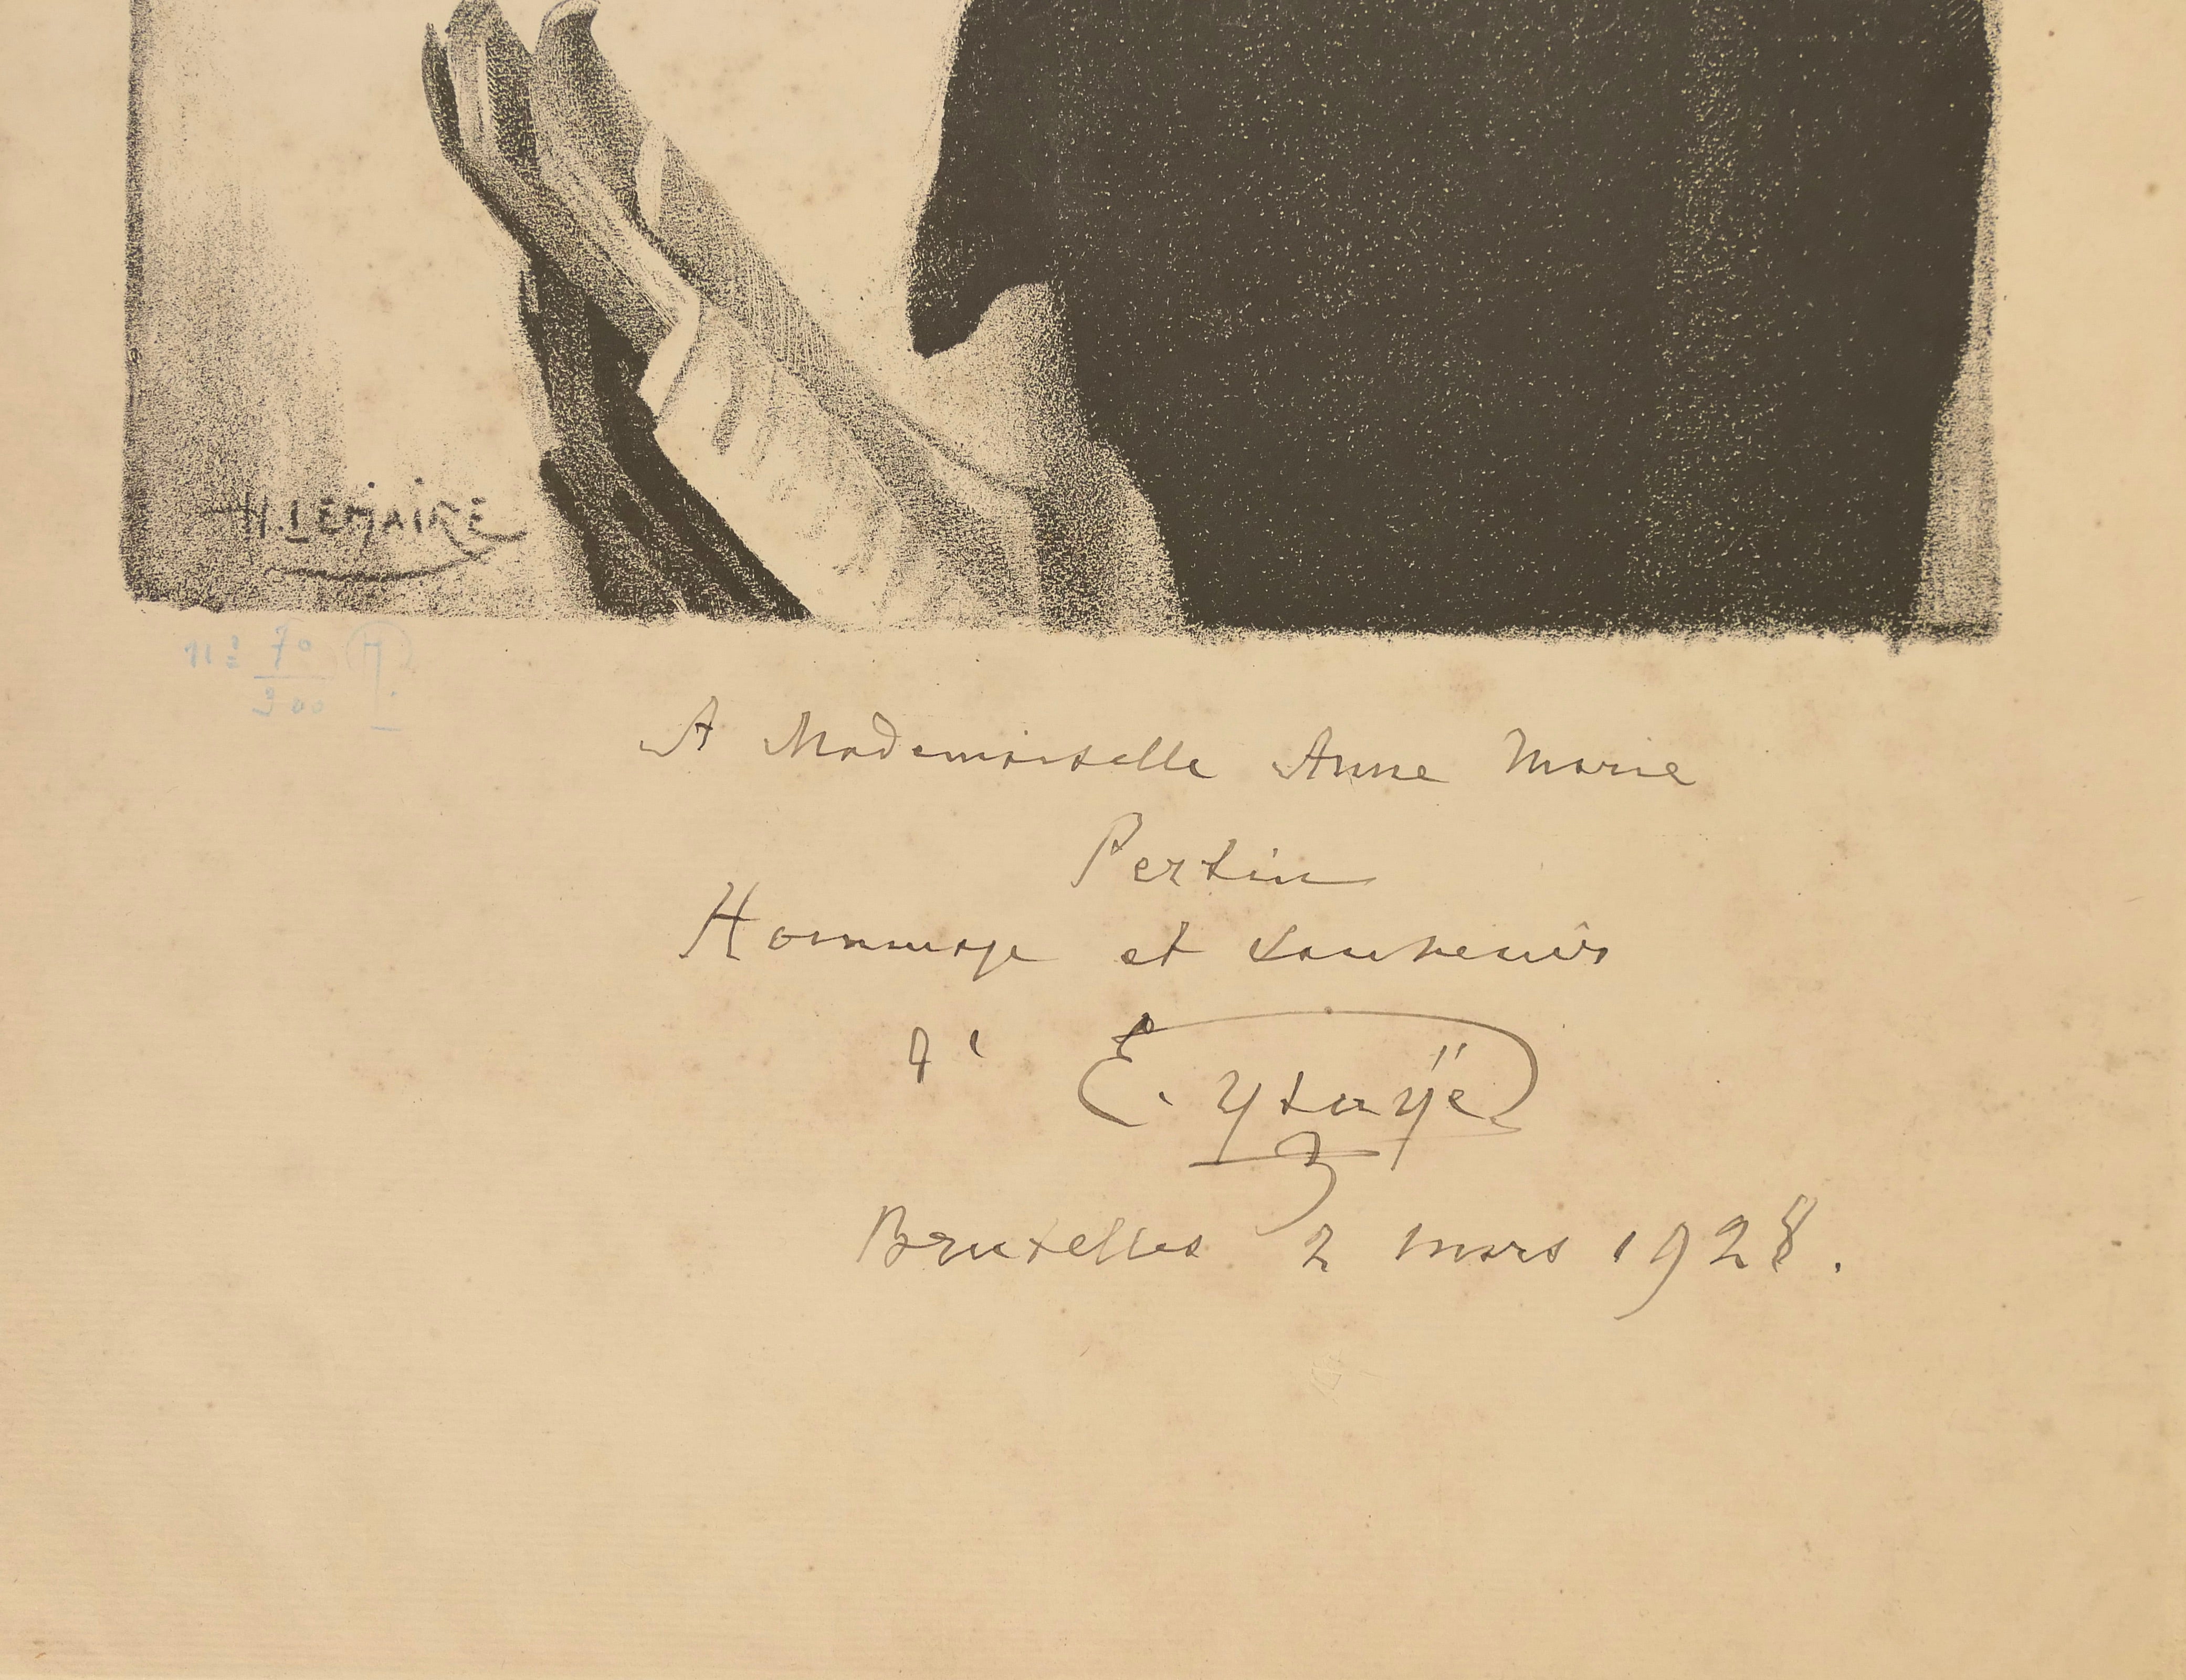 H. LEMAIRE
nº 70
300
A Mademoiselle Anne Marie
Pertin
Hommage et souvenir
d'
E. Ysaÿe
Bruxelles 2 mars 1928.